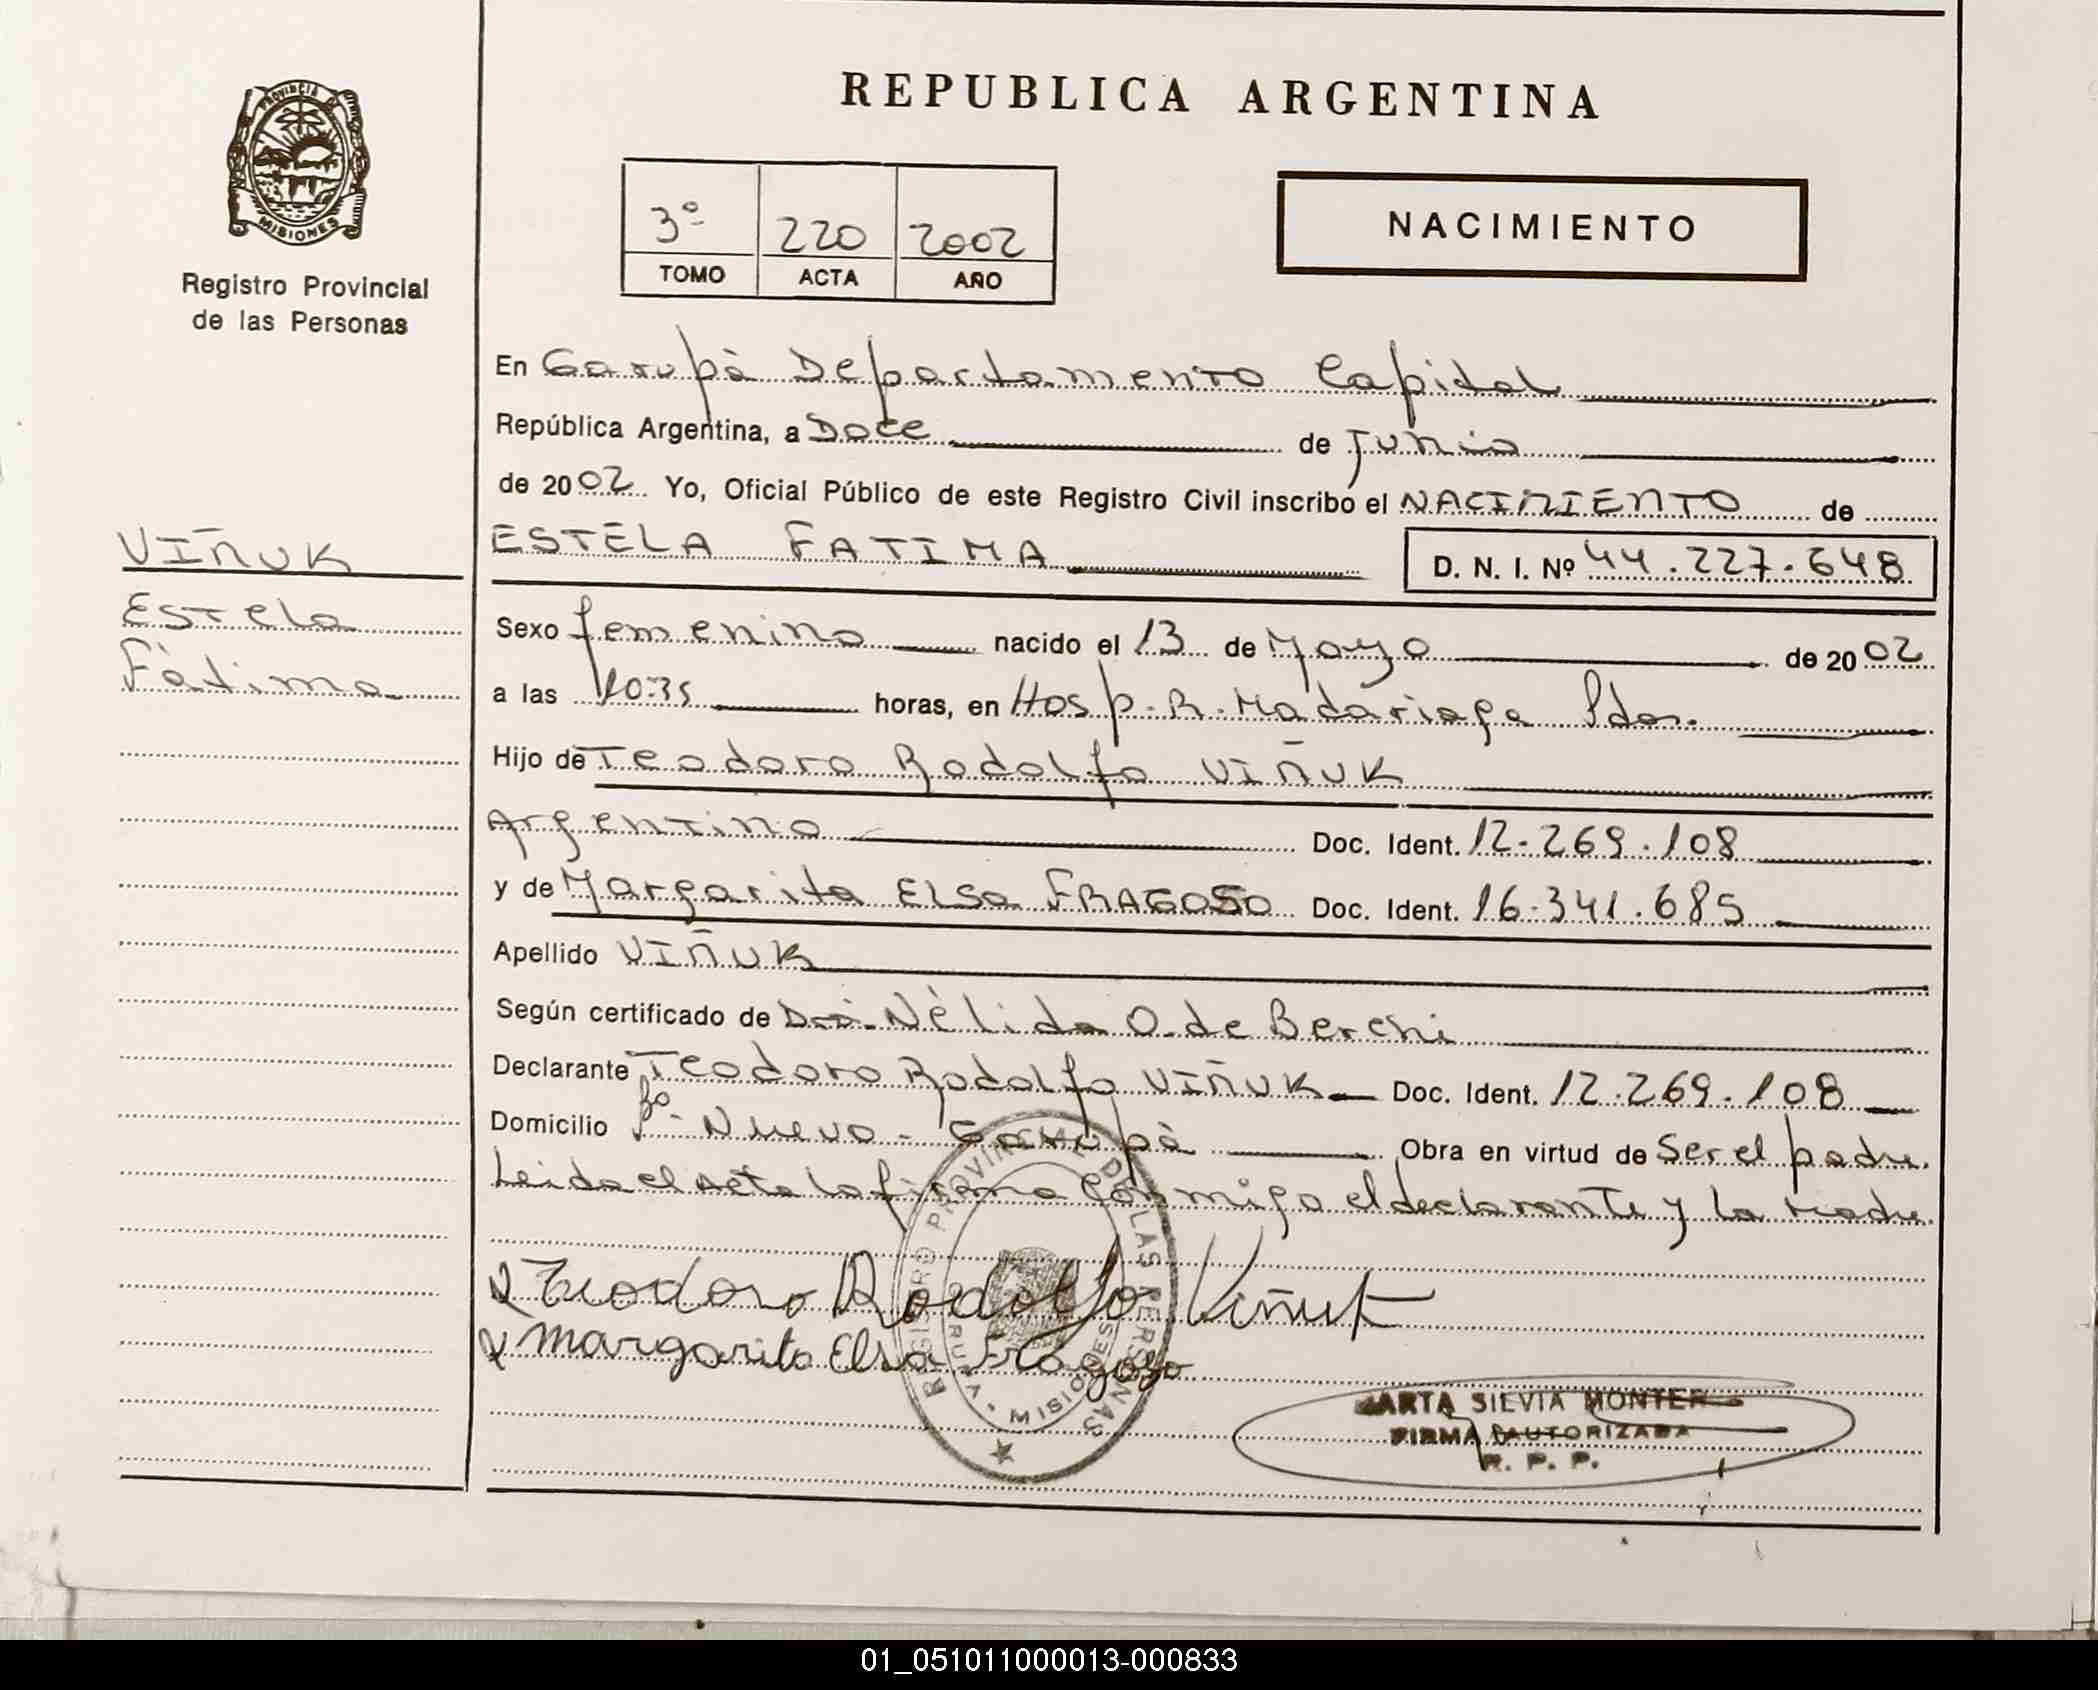 REPUBLICA ARGENTINA
PROVINCIA DE MISIONES
Registro Provincial
de las Personas
3º 220 2002
TOMO ACTA AÑO
NACIMIENTO
En Garupà Departamento Capital
República Argentina, a Doce de Junio
de 2002 Yo, Oficial Público de este Registro Civil inscribo el NACIMIENTO de
VIÑUK
Estela
Fàtima
ESTELA FATIMA D. N. I. Nº 44.227.648
Sexo femenino nacido el 13 de Mayo de 2002
a las 10:35 horas, en Hosp. R. Madariaga Pdas.
Hijo de Teodoro Rodolfo VIÑUK
Argentino Doc. Ident. 12.269.108
y de Margarita ELSA FRAGOSO Doc. Ident. 16.341.685
Apellido VIÑUK
Según certificado de Dra. Nèlida O. de Berchi
Declarante Teodoro Rodolfo VIÑUK Doc. Ident. 12.269.108
Domicilio Bº- Nuevo - Garupà Obra en virtud de Ser el padre.
Leida el Acta la firma conmigo el declarante y la Madre.
Teodoro Rodolfo Viñuk
Margarita Elsa Fragoso
REGISTRO PROVINCIAL DE LAS PERSONAS
MISIONES
MARTA SILVIA MONTER
FIRMA AUTORIZADA
R. P. P.
01_051011000013-000833